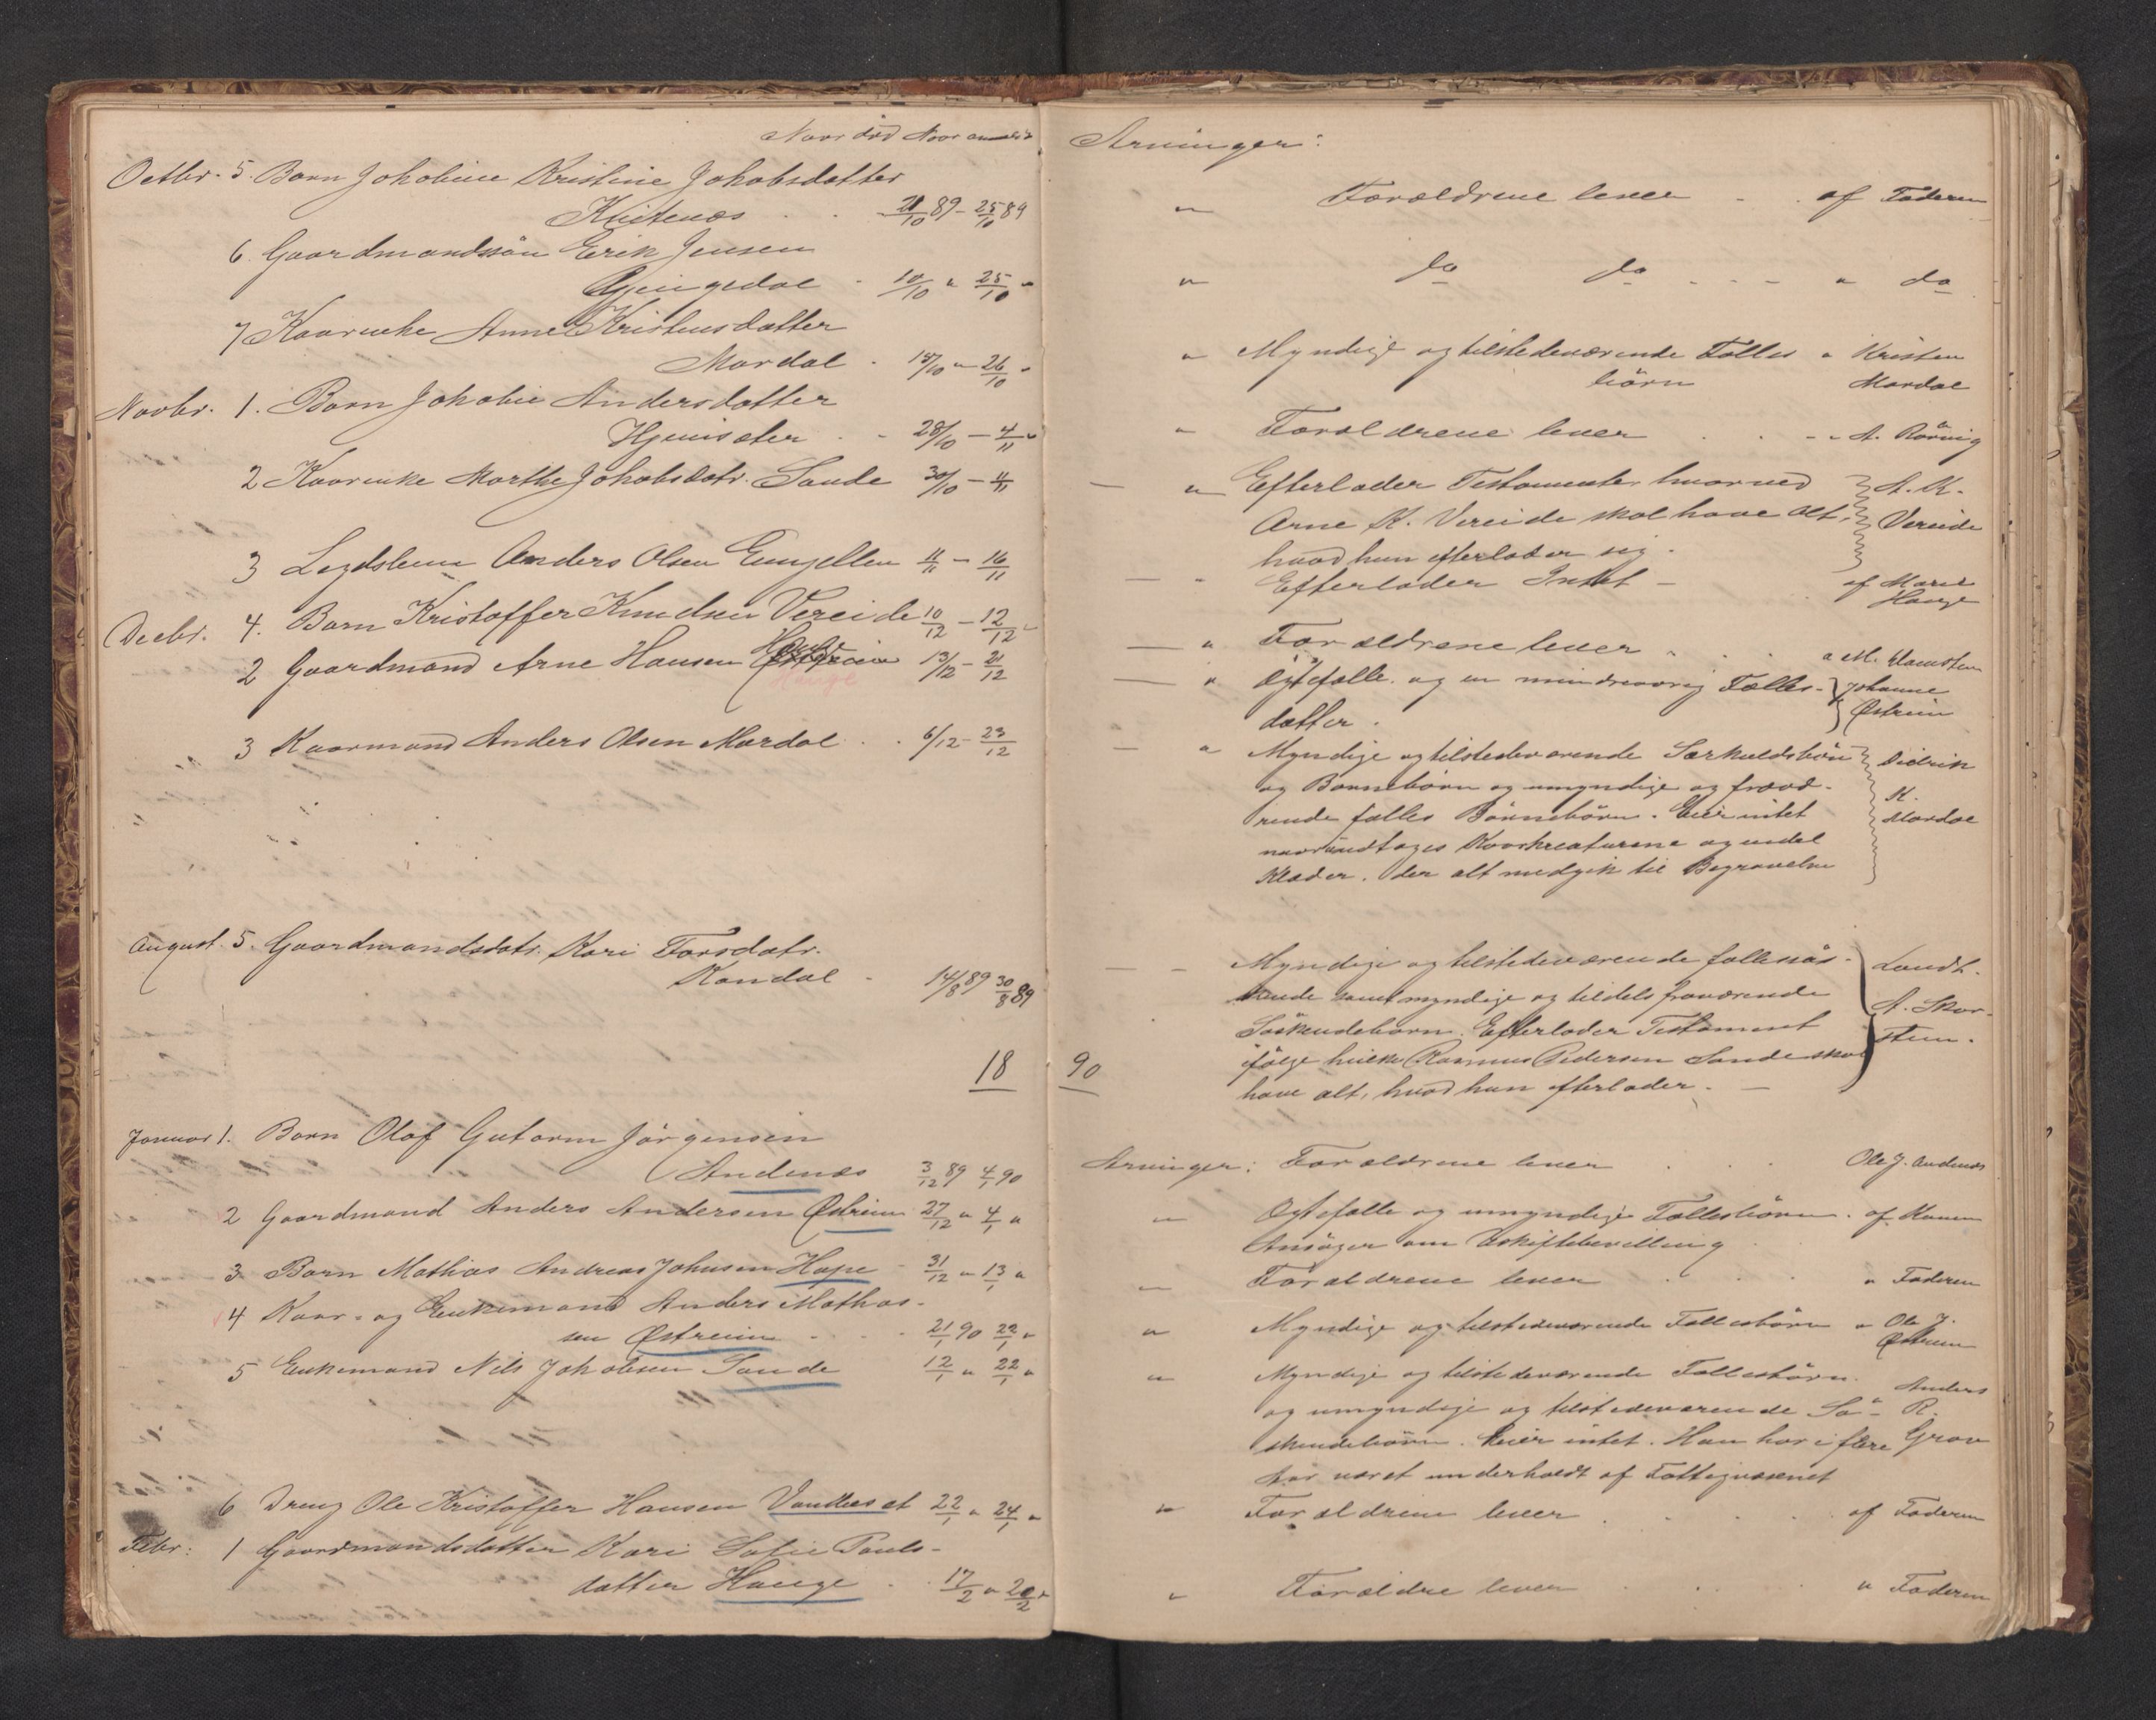 Naar død Naar anmeldt
Octbr. 5. Barn Jakobine Kristine Jakobsdatter
21/10 89 - 25/10 89
6. Gaardmandssön Erik Jensen
Gjengedal - 10/10 " 25/10 "
7 Kaarenke Anne Kristensdatter
Mardal - 18/10 " 26/10 "
Novbr. 1. Barn Jakobie Andersdatter
Hjemsæter . - 28/10 - 4/11 "
2 Kaarenke Marthe Jakobsdatr. Sande 30/10 - 4/11
3 Lægdslem Anders Olsen 11/11 - 16/11
Decbr. 4. Barn Kristoffer Knudsen Vereide 10/12 - 12/12 -
2 Gaardmand Arne Hansen 13/12 - 21/12
Hauge
3 Kaarmand Anders Olsen Mardal . . 6/12 - 23/12
August 5. Gaardmandsdatr. Kari Tarsdatr.
Kandal - 14/8 89 30/8 89
18
Januar 1. Barn Olaf Gutorm Jörgensen
Andenæs 3/12 89 4/1 90
2 Gaardmand Anders Andersen Østreim 27/12 " 4/1 "
3 Barn Mathias Andreas Johnsen Hope - 31/12 " 13/1 "
4 Kaar- og Enkemand Anders Mathias-
sen Østreim . . . 21/1 90 22/1 "
5 Enkemand Nils Jakobsen Sande 12/1 " 22/1 "
6 Dreng Ole Kristoffer Hansen 22/1 " 24/1 "
Febr: 1 Gaardmandsdatter Kari Sofie Pauls-
datter Hauge . . 17/2 " 20/2 "
Arvinger:
" Forældrene lever - . af Faderen
" do do - - - " do
" Myndige og tilstedeværende Fælles " Kristen
börn Mardal
" Forældrene lever . . - " A. Rörvig
— " Efterlader Testamente, hvorved A. K.
Arne K. Vereide skal have alt, Vereide
hvad hun efterlader sig.
— " Efterlader Intet — af Marie
Hauge
— " Forældrene lever . . . " M.
— " Ægtefælle og en mindreaarig Fælles- Johanne
datter. Østreim
— " Myndige og tilstedeværende Særkuldsbörn Didrik
og Barnebörn og umyndige og fravæ- K.
rende fælles Börnebörn. Eier intet Mardal
naar undtages Kaarkreaturene og endel
Klæder. der alt medgik til Begravelse
— - Myndige og tilstedeværende fællessös- Landh.
kende samt myndige og tildels fraværende A. Skar-
Söskendebarn. Efterlader Testament stein.
ifölge hvilke Rasmus Pedersen Sande skal
90
have alt, hvad hun efterlader. —
Arvinger: Forældrene lever . . . Ole J. Andenæs
" Ægtefælle og umyndige Fællesbörn. af Konen
Ansöger om Uskiftebevilling
" Forældrene lever . . . " Faderen
" Myndige og tilstedeværende Fællesbörn " Ole J.
Østreim
" Myndige og tilstedeværende Fællesbörn. Anders
og umyndige og tilstedeværende Sö- R.
skendebörn. Eier intet. Han har i flere Grov
Aar været underholdt af Fattigvæsenet
" Forældrene lever . . . . af Faderen
" Forældre lever . . . " Faderen